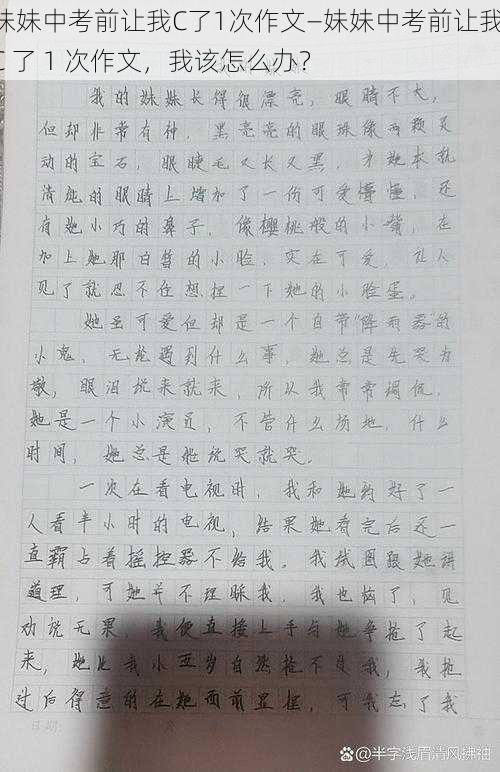 妹妹中考前让我C了1次作文—妹妹中考前让我
C了1次作文，我该怎么办？
我的妹妹长得很漂亮，眼睛不大，
但却非常有神，黑亮亮的眼珠像两颗灵
动的宝石，眼睫毛又长又黑，为她本就
清纯的眼睛上增加了一份可爱懵懂，还
有她小巧的鼻子，像樱桃般的小嘴，在
加上她那白皙的小脸，实在可爱，让人
见了就忍不住想捏一下她的小脸蛋。
她虽可爱但却是一个自带“降雨器”的
小鬼，无论遇到什么事，她总是先哭为
敬，眼泪说来就来，所以我常常调侃，
她是一个小演员，不管什么场地，什么
时间，她总是她说哭就哭。
一次在看电视时，我和她约好了一
人看半小时的电视，结果她看完后还一
直霸占着摇控器不给我。我试图跟她讲
道理，可她并不理睬我，我也恼了，见
劝说无果，我便直接上手与她争抢了起
来，她比我小五岁自然抢不过我，我抢
过后得意的在她面前显摆，可我忘了我
日期：
百家号@半字浅眉清风拂袖